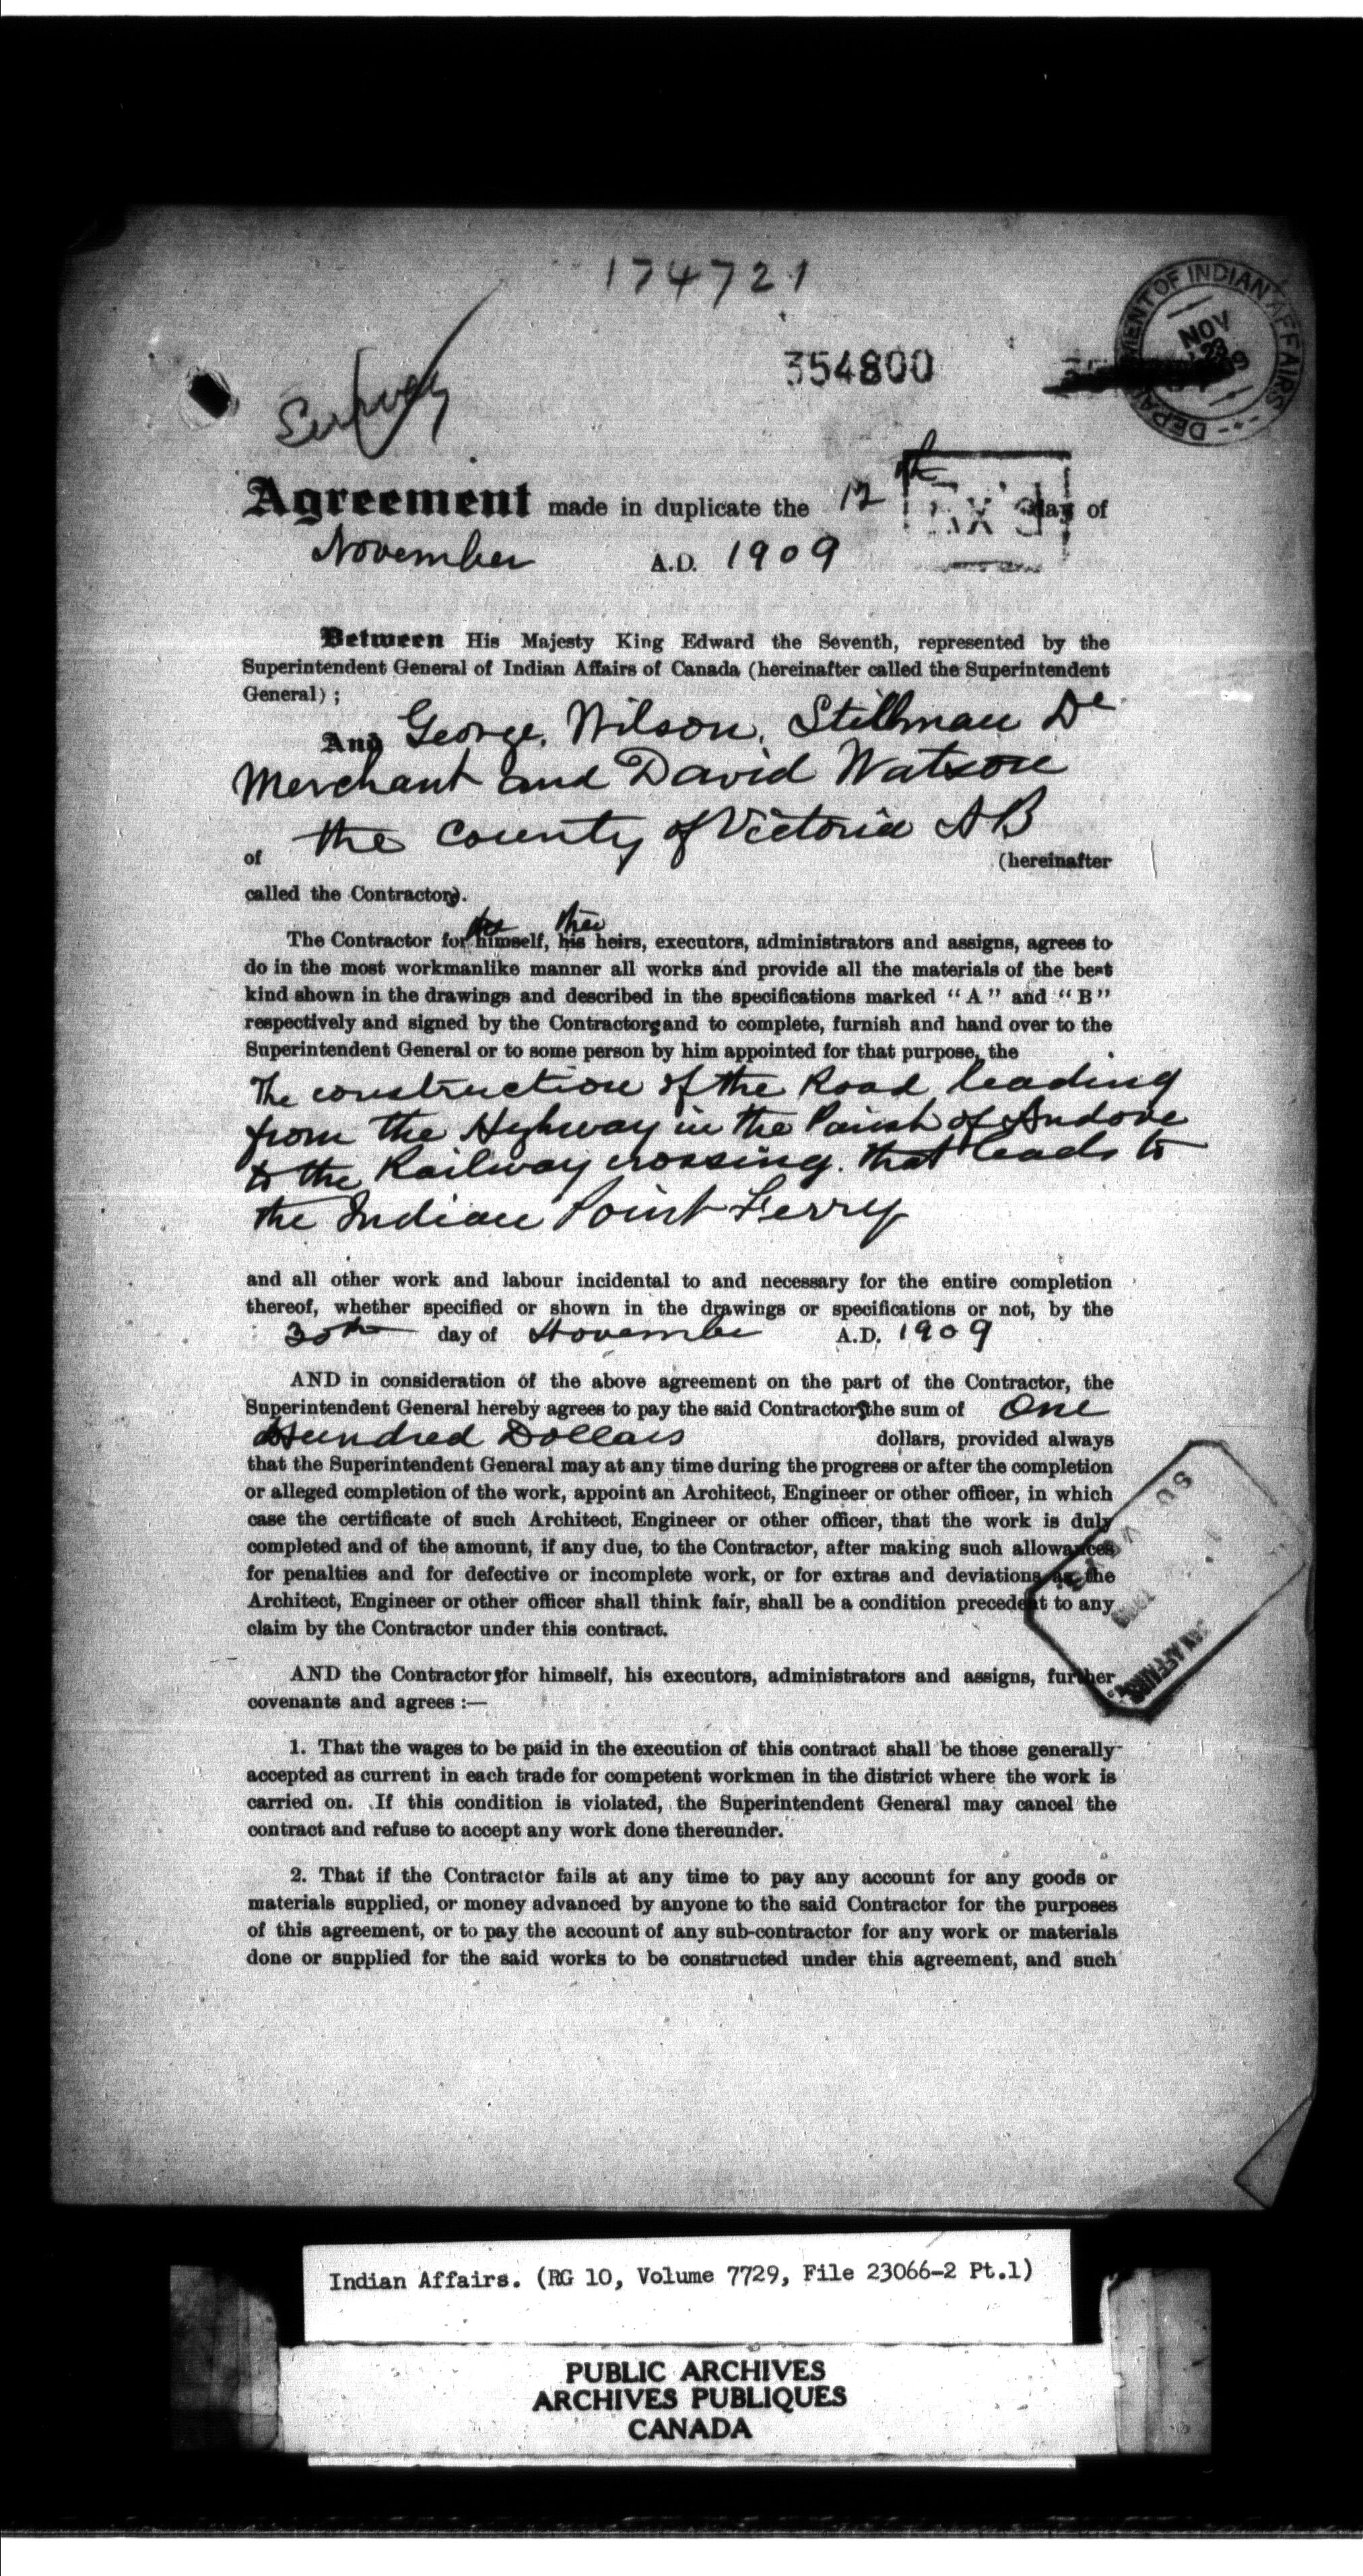 174721
354800
DEPARTMENT OF INDIAN AFFAIRS
NOV
23
1909
Survey
Agreement made in duplicate the 12th day of
November A.D. 1909
Between His Majesty King Edward the Seventh, represented by the
Superintendent General of Indian Affairs of Canada (hereinafter called the Superintendent
General) ;
And George Wilson, Stillman De
Merchant and David Watson
of the County of Victoria NB (hereinafter
called the Contractors).
The Contractor for himself, his heirs, executors, administrators and assigns, agrees to
do in the most workmanlike manner all works and provide all the materials of the best
kind shown in the drawings and described in the specifications marked “A” and “B”
respectively and signed by the Contractors and to complete, furnish and hand over to the
Superintendent General or to some person by him appointed for that purpose, the
The construction of the Road leading
from the Highway in the Parish of Andove
to the Railway crossing. that leads to
the Indian Point Ferry
and all other work and labour incidental to and necessary for the entire completion
thereof, whether specified or shown in the drawings or specifications or not, by the
30th day of November A.D. 1909
AND in consideration of the above agreement on the part of the Contractor, the
Superintendent General hereby agrees to pay the said Contractors the sum of One
Hundred Dollars dollars, provided always
that the Superintendent General may at any time during the progress or after the completion
or alleged completion of the work, appoint an Architect, Engineer or other officer, in which
case the certificate of such Architect, Engineer or other officer, that the work is duly
completed and of the amount, if any due, to the Contractor, after making such allowances
for penalties and for defective or incomplete work, or for extras and deviations as the
Architect, Engineer or other officer shall think fair, shall be a condition precedent to any
claim by the Contractor under this contract.
AND the Contractors for himself, his executors, administrators and assigns, further
covenants and agrees :—
1. That the wages to be paid in the execution of this contract shall be those generally
accepted as current in each trade for competent workmen in the district where the work is
carried on. If this condition is violated, the Superintendent General may cancel the
contract and refuse to accept any work done thereunder.
2. That if the Contractor fails at any time to pay any account for any goods or
materials supplied, or money advanced by anyone to the said Contractor for the purposes
of this agreement, or to pay the account of any sub-contractor for any work or materials
done or supplied for the said works to be constructed under this agreement, and such
Indian Affairs. (RG 10, Volume 7729, File 23066-2 Pt.1)
PUBLIC ARCHIVES
ARCHIVES PUBLIQUES
CANADA